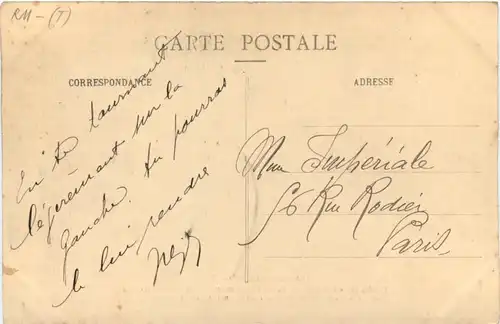 R11-(T)
CARTE POSTALE
CORRESPONDANCE
En te tournant
légèrement sur la
gauche. tu pourras
le lui rendre
ADRESSE
Mme Impériale
56 Rue Rodier
Paris